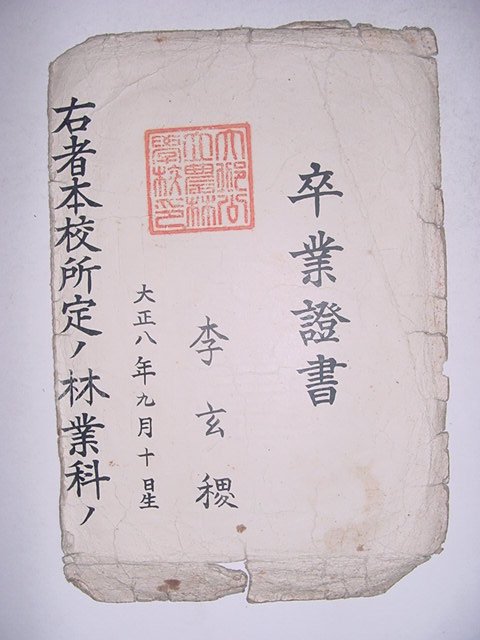 卒業證書
李玄稷
大邱公
立農林
學校印
大正八年九月十日生
右者本校所定ノ林業科ノ